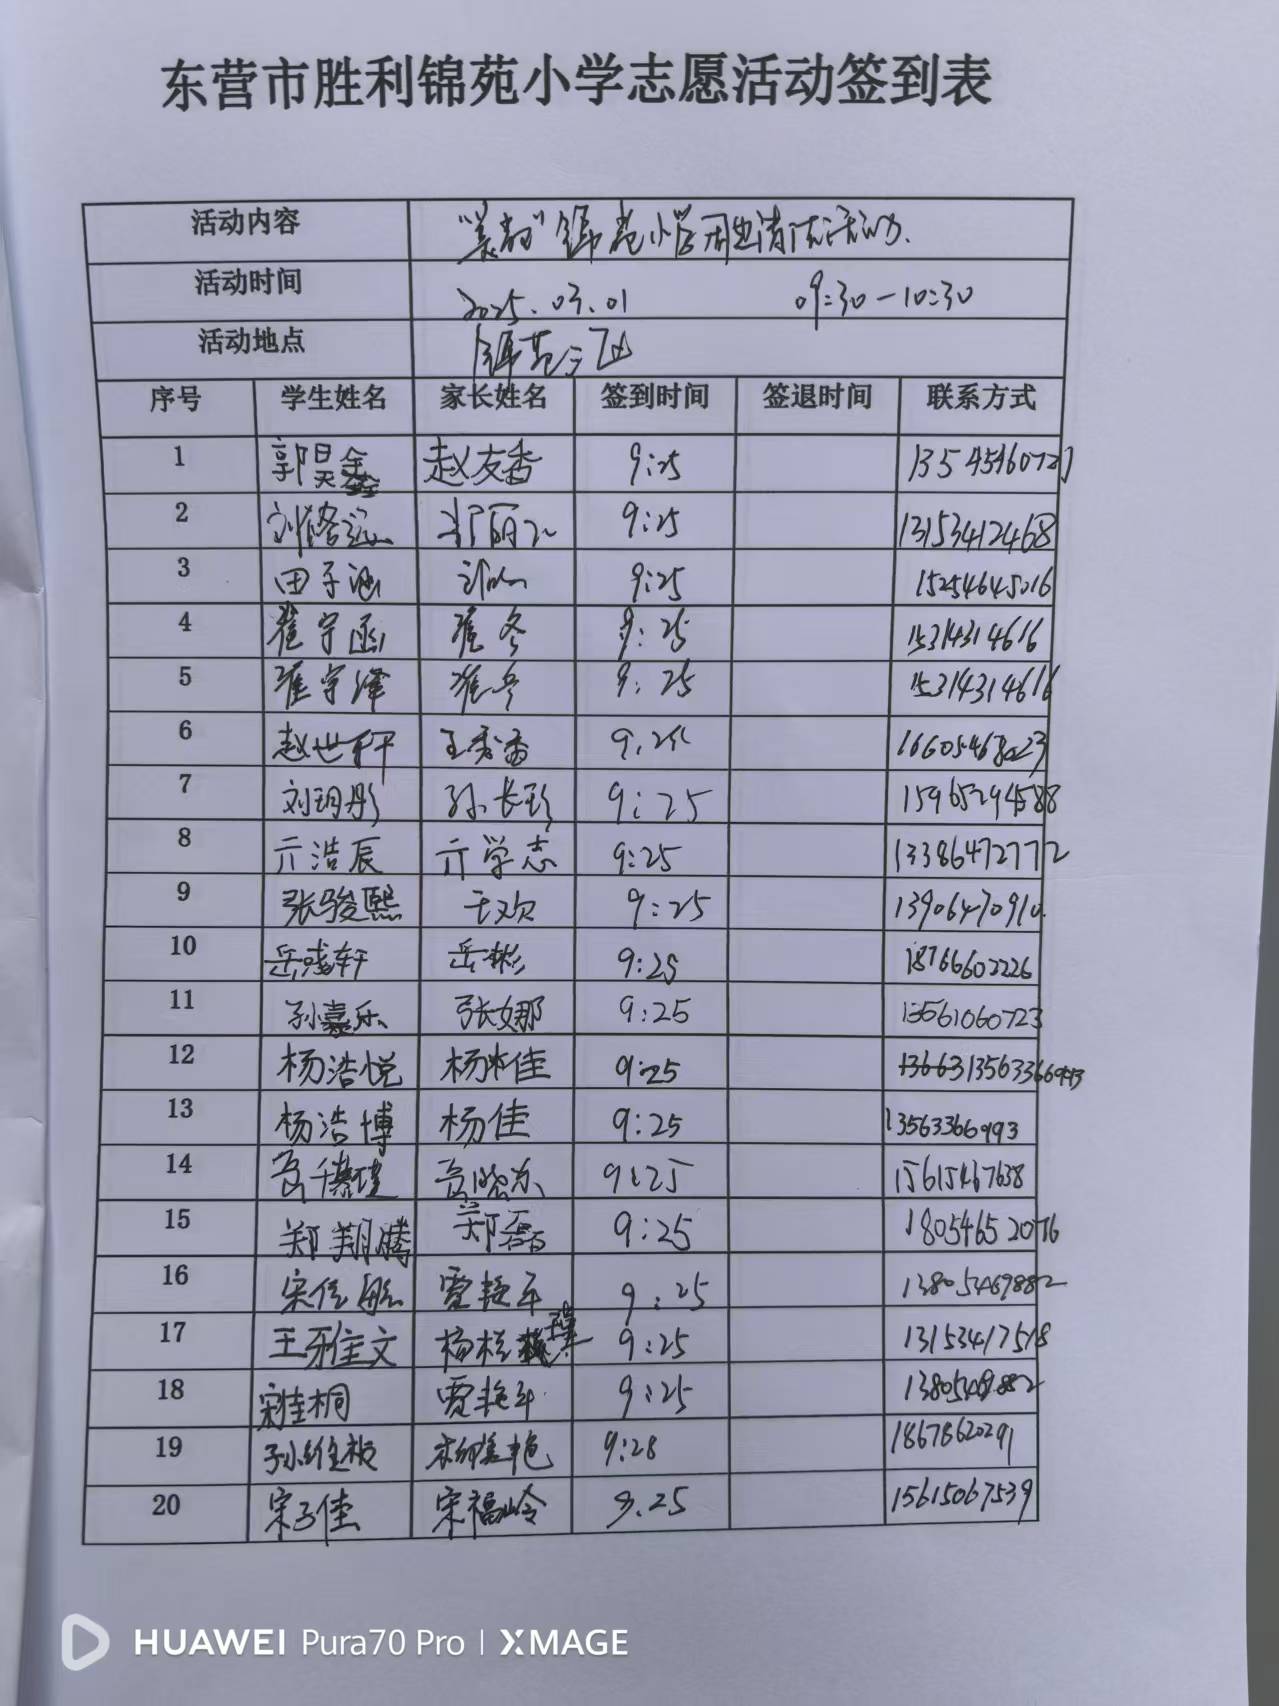 东营市胜利锦苑小学志愿活动签到表
活动内容 锦苑小学周边清洁活动.
活动时间 2025.03.01 09:30-10:30
活动地点 锦苑三区
序号 学生姓名 家长姓名 签到时间 签退时间 联系方式
1 郭昊鑫 赵友香 9:25
2 9:25 13153412468
3 田子涵 9:25 15254645016
4 崔宇函 崔冬 9:25 15314314616
5 崔宇泽 崔冬 9:25 15314314616
6 赵世轩 王秀香 9:25 16605468023
7 刘玥彤 孙长珍 9:25 15965294588
8 亓浩辰 亓学志 9:25 13386472772
9 张骏熙 王欢 9:25 13906470910
10 岳彧轩 岳彬 9:25 18766602226
11 孙嘉乐 张娜 9:25 13561060723
12 杨浩悦 杨佳 9:25
13 杨浩博 杨佳 9:25 13563366993
14 9:25 15615467638
15 郑翔腾 郑磊 9:25 18054652076
16 宋佳航 贾艳军 9:25 13805469882
17 王雅文 9:25 13153417518
18 宋佳桐 贾艳军 9:25 13805469882
19 9:28 18678620291
20 宋子佳 宋福岭 9.25 15615067539
HUAWEI Pura70 Pro | XMAGE